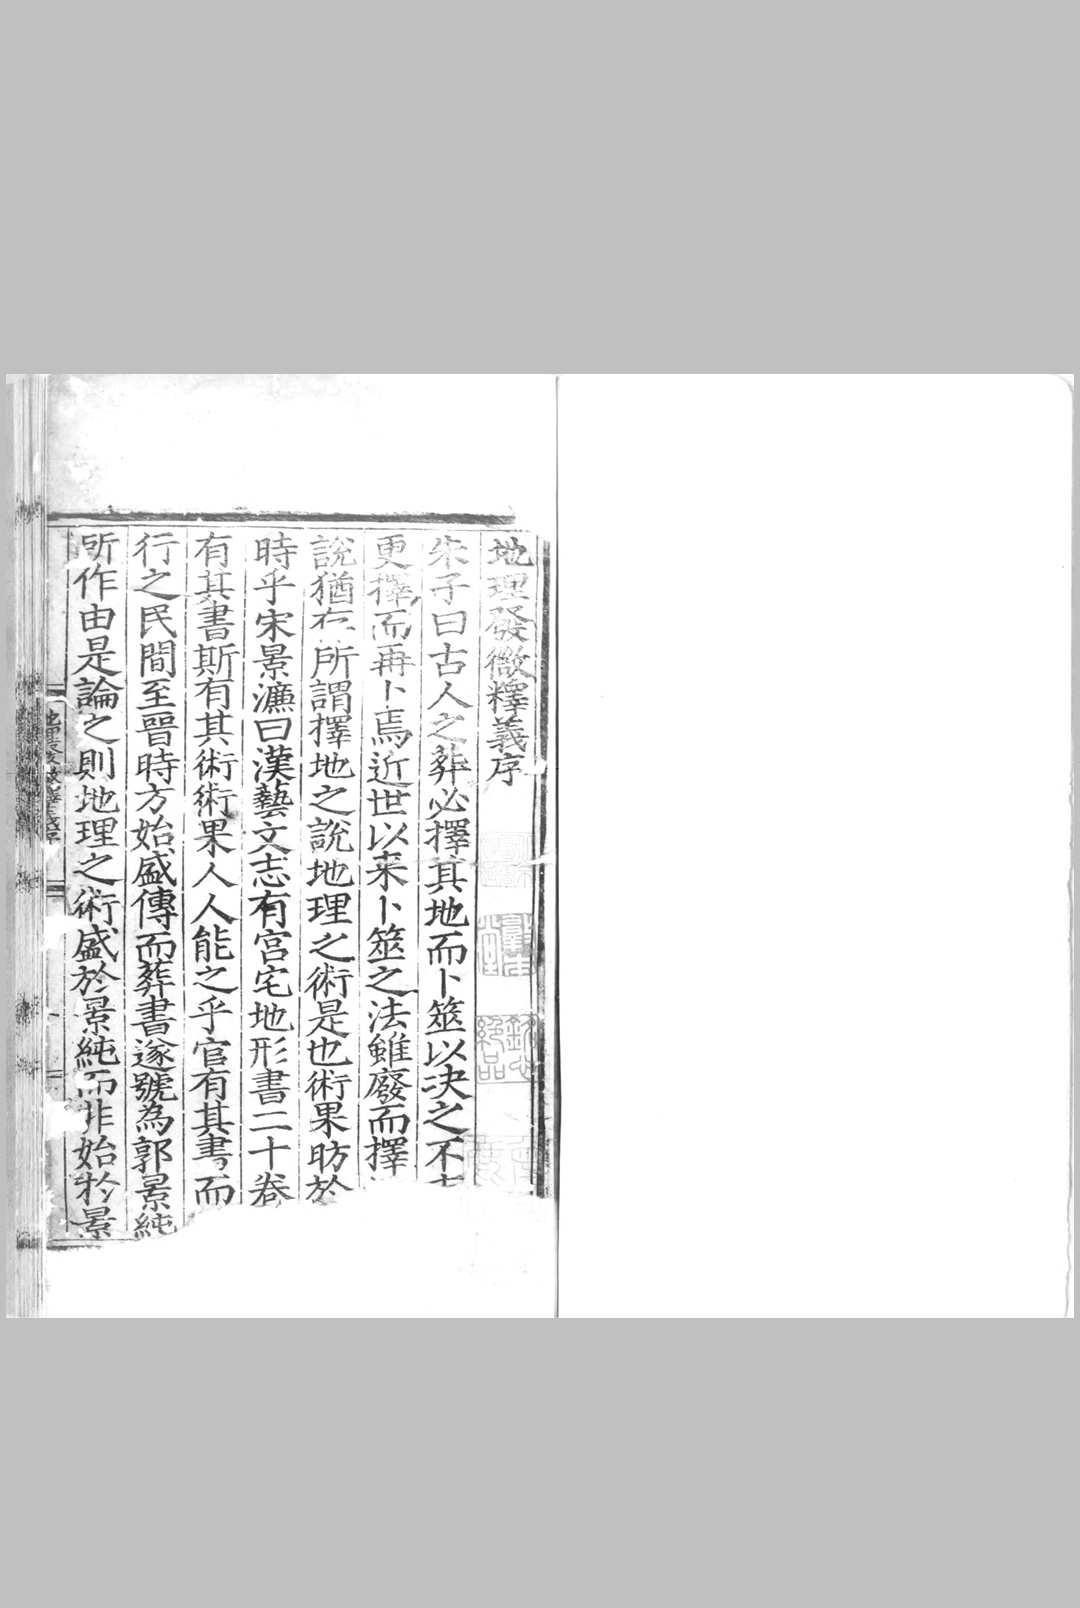 地理發微釋義序
朱子曰古人之葬必擇其地而卜筮以决之不吉
更擇而再卜焉近世以来卜筮之法雖廢而擇
說猶存所謂擇地之說地理之術是也術果昉於
時乎宋景濂曰漢藝文志有宫宅地形書二十卷
有其書斯有其術術果人人能之乎官有其書而
行之民間至晉時方始盛傳而葬書遂號為郭景純
所作由是論之則地理之術盛於景純而非始於景